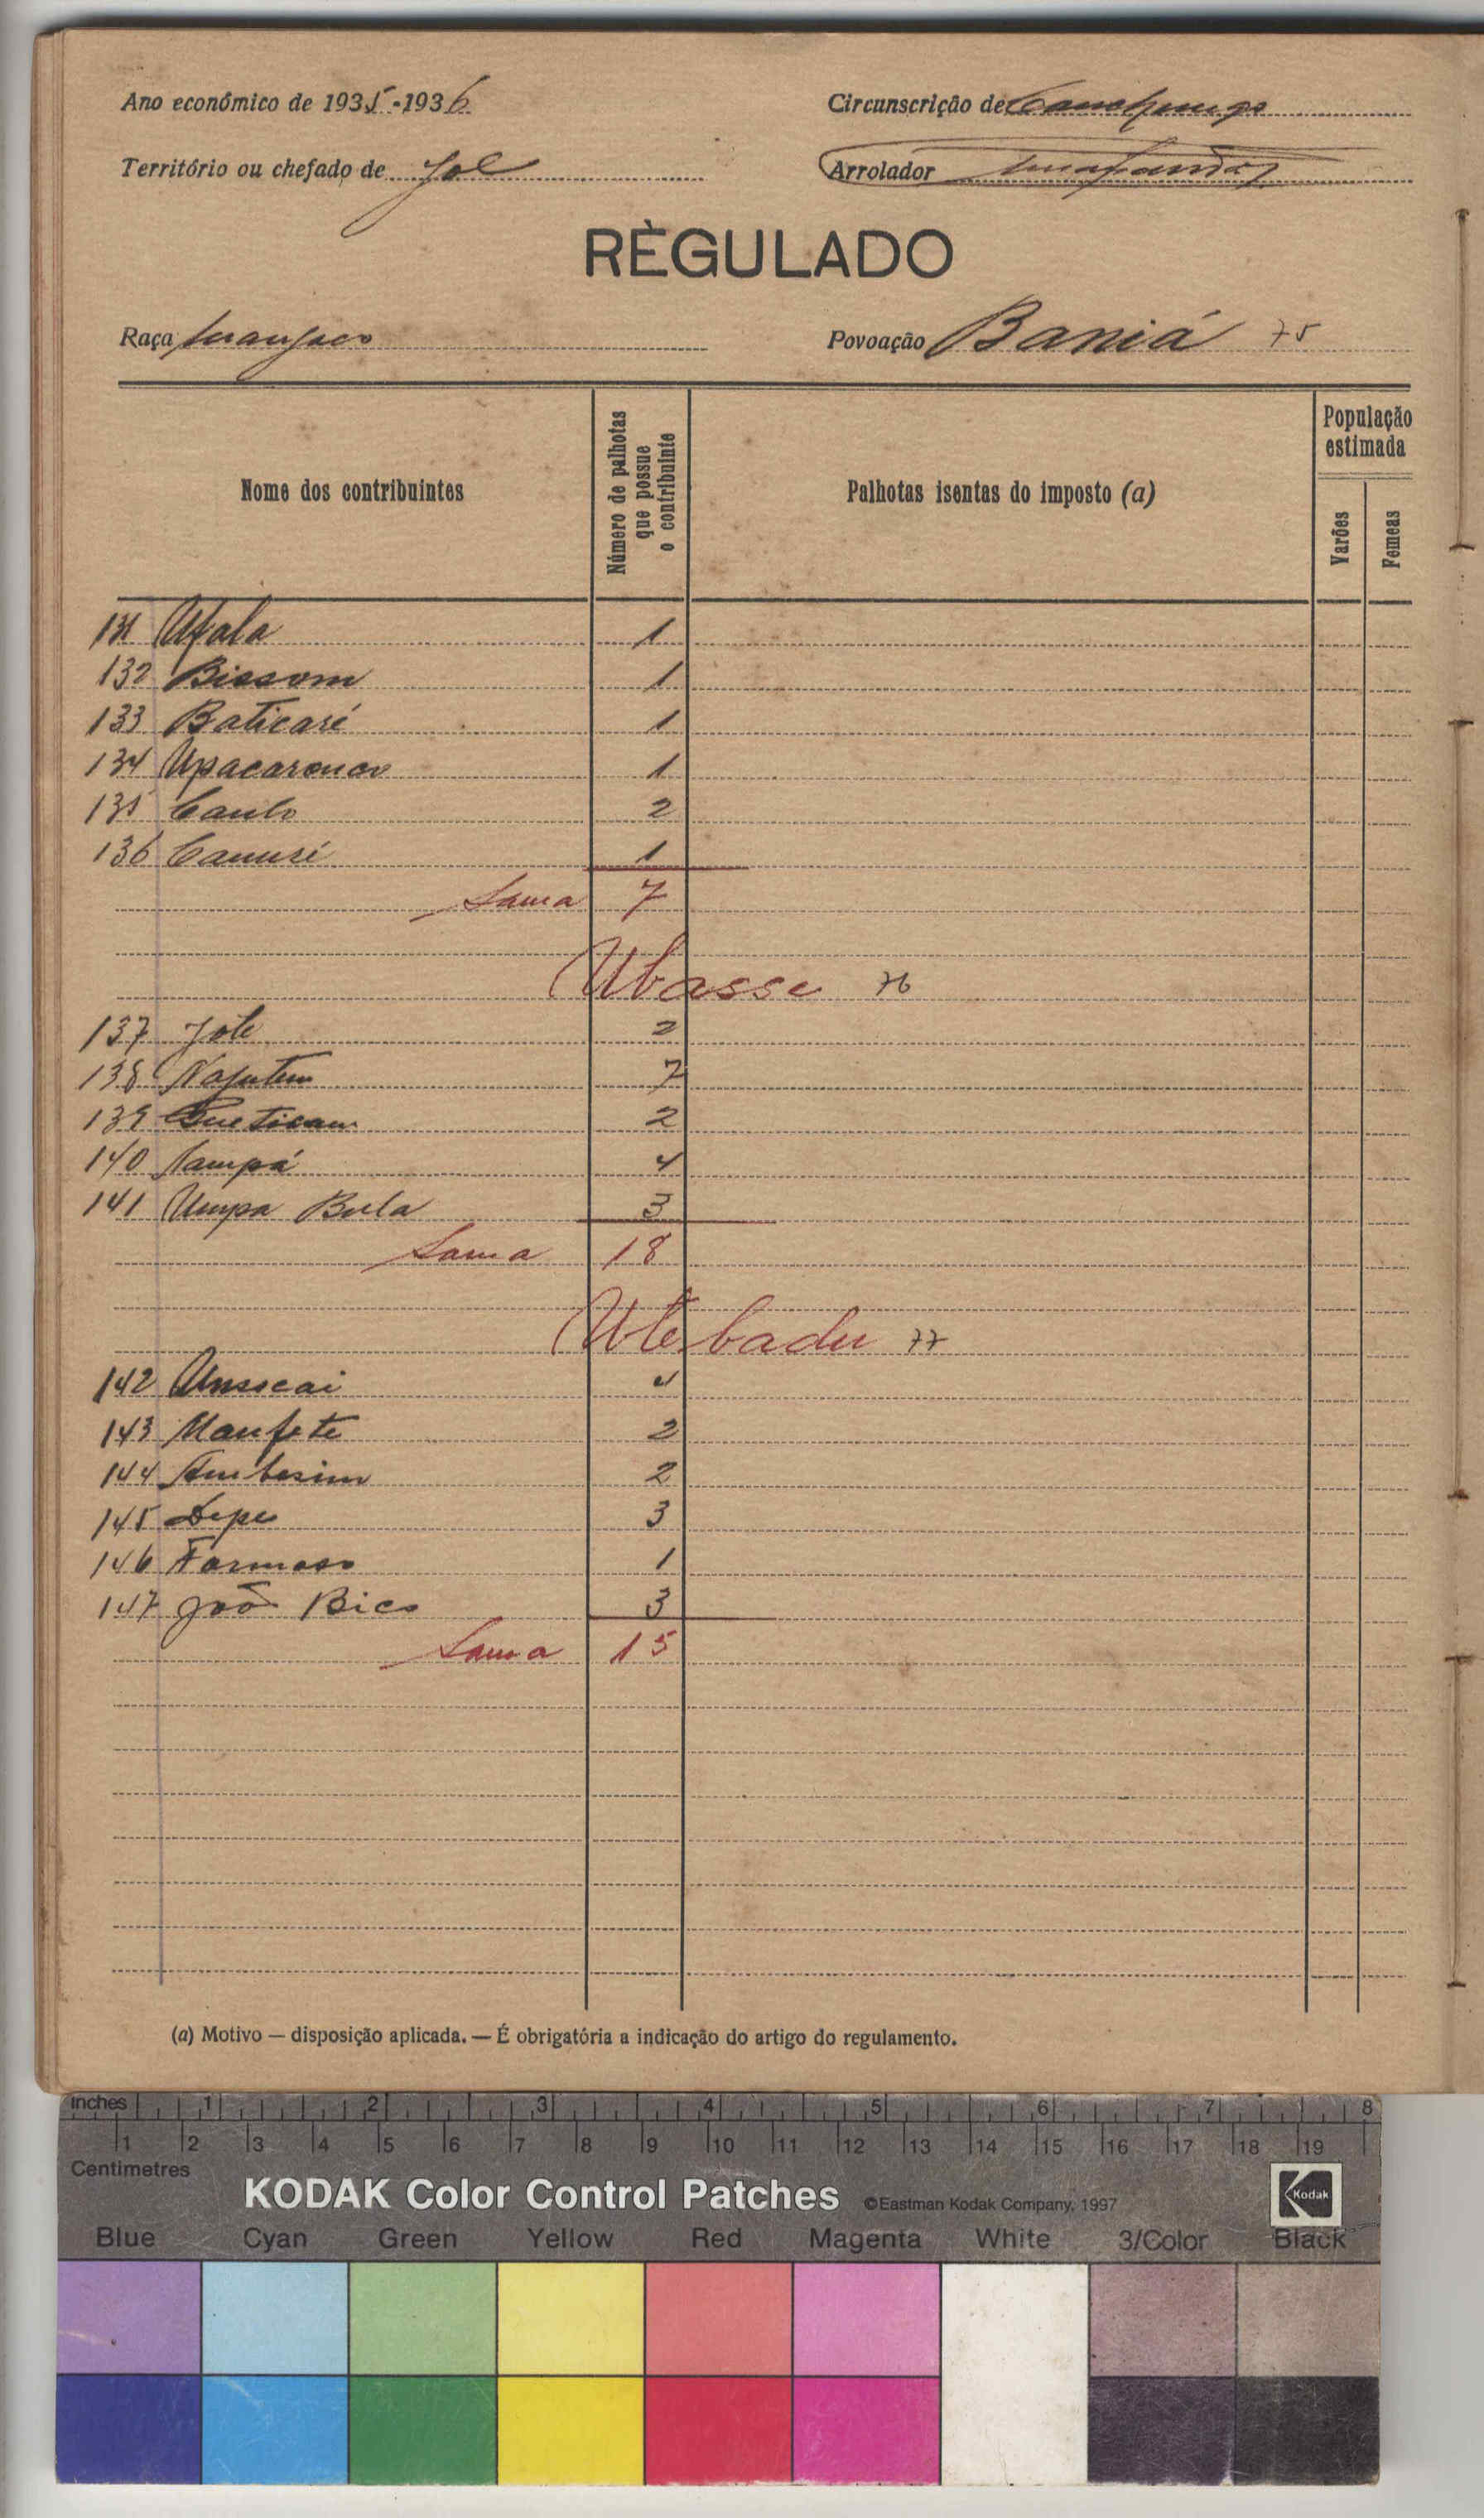 Ano económico de 1935-1936
Circunscrição de Canchungo
Território ou chefado de Jol
Arrolador
RÈGULADO
Raça Manjaco
Povoação Baniá 75
Nome dos contribuintes
Número de palhotas que possue o contribuinte
Palhotas isentas do imposto (a)
População estimada
Varões
Femeas
131 Ufala 1
132 Bissom 1
133 Baticaré 1
134 1
135 Canlo 2
136 Canuré 1
Soma 7
Ubasse 76
137 Jole 2
138 Najutem 7
139 2
140 Nampá 4
141 Umpa Bula 3
Soma 18
Utebadu 77
142 Unsscai 4
143 Manfete 2
144 2
145 Depe 3
146 Formoso 1
147 João Bico 3
Soma 15
(a) Motivo — disposição aplicada. — É obrigatória a indicação do artigo do regulamento.
inches 1 2 3 4 5 6 7 8
1 2 3 4 5 6 7 8 9 10 11 12 13 14 15 16 17 18 19
Centimetres
KODAK Color Control Patches ©Eastman Kodak Company, 1997 Kodak
Blue Cyan Green Yellow Red Magenta White 3/Color Black